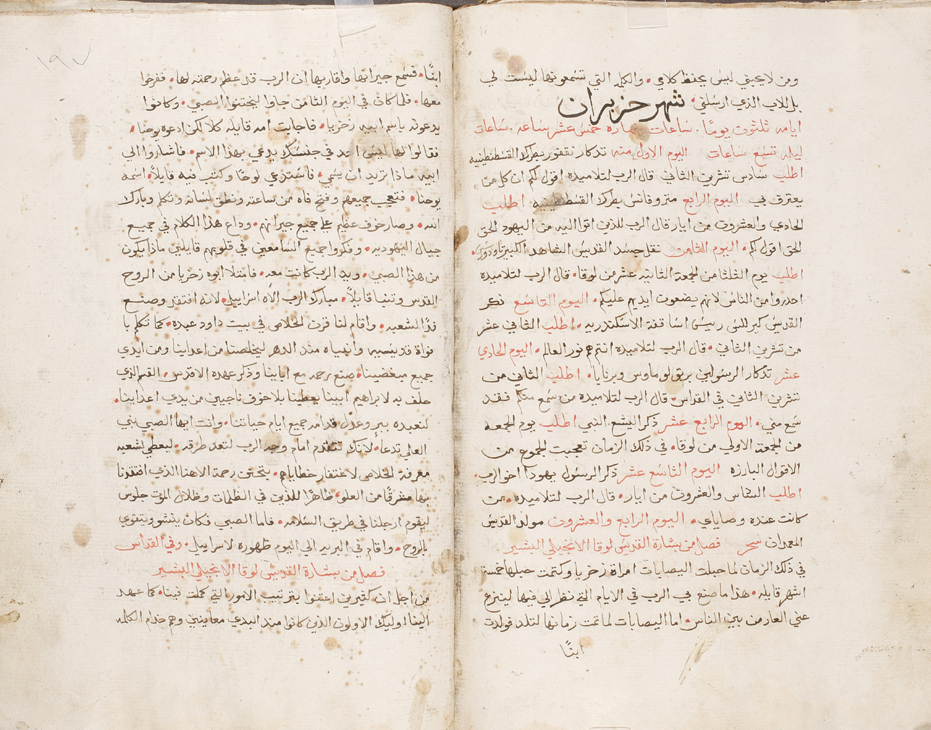 ومن لا يحبني ليس يحفظ كلامي والكلمه التي تسمعونها ليست لي
بل للاب الذي ارسلني شهر حزيران
ايامه ثلثون يومًا ساعات نهاره خمس عشر ساعه ساعات
ليله تسع ساعات اليوم الاول منه تذكار نقفور بطرك القسطنطينيه
اطلب سادس تشرين الثاني قال الرب لتلاميذه اقول لكم ان كل من
يعترف بي اليوم الرابع متروفانس بطرك القسطنطينيه اطلب
الحادي والعشرون من ايار قال الرب للذين اقبلوا اليه من اليهود الحق
الحق اقول لكم اليوم الثامن نقل جسد القديس الشاهد الكبير تاودورس
اطلب يوم الثلثا من الجمعة الثانيه عشر من لوقا قال الرب لتلاميذه
احذروا من الناس لانهم يضعون ايديهم عليكم اليوم التاسع ذكر
القديس كيرللس رييس اساقفة الاسكندريه اطلب الثاني عشر
من تشرين الثاني قال الرب لتلاميذه انتم هو نور العالم اليوم الحادي
عشر تذكار الرسولين برتلوماوس وبرنابا اطلب الثاني من
تشرين الثاني في القداس قال الرب لتلاميذه من سمع منكم فقد
سمع مني اليوم الرابع عشر ذكر اليشع النبي اطلب يوم الجمعه
من الجمعة الاولي من لوقا في ذلك الزمان تعجبت الجموع من
الاقوال البارزه اليوم التاسع عشر ذكر الرسول يهودا اخو الرب
اطلب الخامس والعشرون من ايار قال الرب لتلاميذه من
كانت عنده وصاياي اليوم الرابع والعشرون مولد القديس
المعمدان سحر فصل من بشارة القديس لوقا الانجيلي البشير
في ذلك الزمان لما حبلت اليصابات امراة زخريا وكتمت حبلها خمسة
اشهر قايله هذا ما صنع بي الرب في الايام التي نظر الي فيها لينزع
عني العار من بين الناس اما اليصابات لما تمت زمانها لتلد فولدت
ابنًا
١٩٧
ابنًا فسمع جيرانها واقاربها ان الرب قد عظم رحمته لها ففرحوا
معها فلما كان في اليوم الثامن جاوا ليختنوا الصبي وكانوا
يدعونه باسم ابيه زخريا فاجابت امه قايله كلا لكن ادعوه يوحنا
فقالوا لها ليس احد في جنسك يدعي بهذا الاسم فاشاروا الي
ابيه ماذا تريد ان يسمي فاستدعي لوحًا وكتب فيه قايلاً اسمه
يوحنا فتعجب جميعهم وفتح فاه من ساعته ونطق لسانه وتكلم وبارك
الله وصار خوف عظيم علي جميع جيرانهم وذاع هذا الكلام في جميع
جبال اليهوديه وفكروا جميع السامعين في قلوبهم قايلين ماذا يكون
من هذا الصبي ويد الرب كانت معه فامتلا ابوه زخريا من الروح
القدس وتنبا قايلاً مبارك الرب اله اسراييل لانه افتقد وصنع
فدًا لشعبه واقام لنا قرن الخلاص في بيت داود عبده كما تكلم با
فواه قديسيه وانبياه منذ الدهر ليخلصنا من اعداينا ومن ايدي
جميع مبغضينا صنع رحمه مع ابايِنا وذكر عهده الاقدس القسم الذي
حلف به لابراهيم ابينا يعطينا بلا خوف ناجيين من يدي اعداينا
لنعبده ببر وعدل قدامه جميع ايام حياتنا وانت ايها الصبي نبي
العلي تدعا لانك تتقدم امام وجه الرب لتعد طرقه ليعطي لشعبه
معرفة الخلاص لاغتفار خطاياهم بتحنن رحمة الاهنا الذي افتقدنا
بها مشرقًا من العلو ظاهرًا للذين في الظلمات وظلال الموت جلوس
ليقوم ارجلنا في طريق السلامه فاما الصبي فكان ينشو ويتقوي
بالروح واقام في البريه الي اليوم ظهوره لاسراييل وفي القداس
فصل من بشارة القديس لوقا الانجيلي البشير
من اجل ان كثيرين اعتنوا بترتيب الامور التي كملت فينا كما عهد
الينا اوليك الاولون الذين كانوا منذ البدي معاينين وهم خدام الكلمه